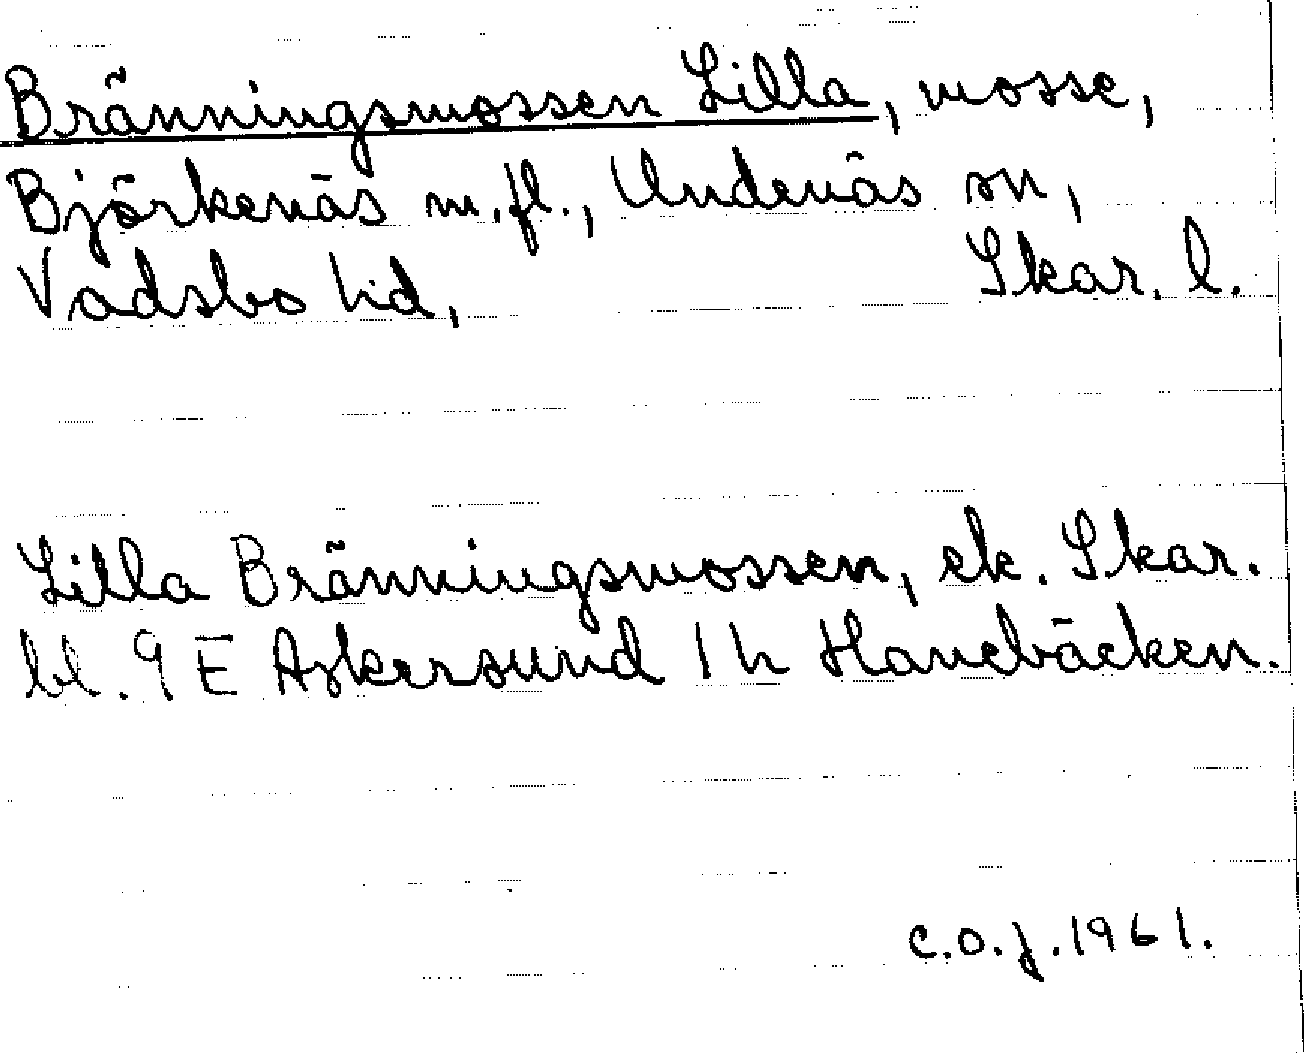 Bränningsmossen Lilla, mosse,
Björkenäs m.fl., Undenäs sn,
Vadsbo hd, Skar. l.
Lilla Bränningsmossen, ek. Skar.
bl. 9 E Askersund 1 h Hanebäcken.
C.O.J. 1961.